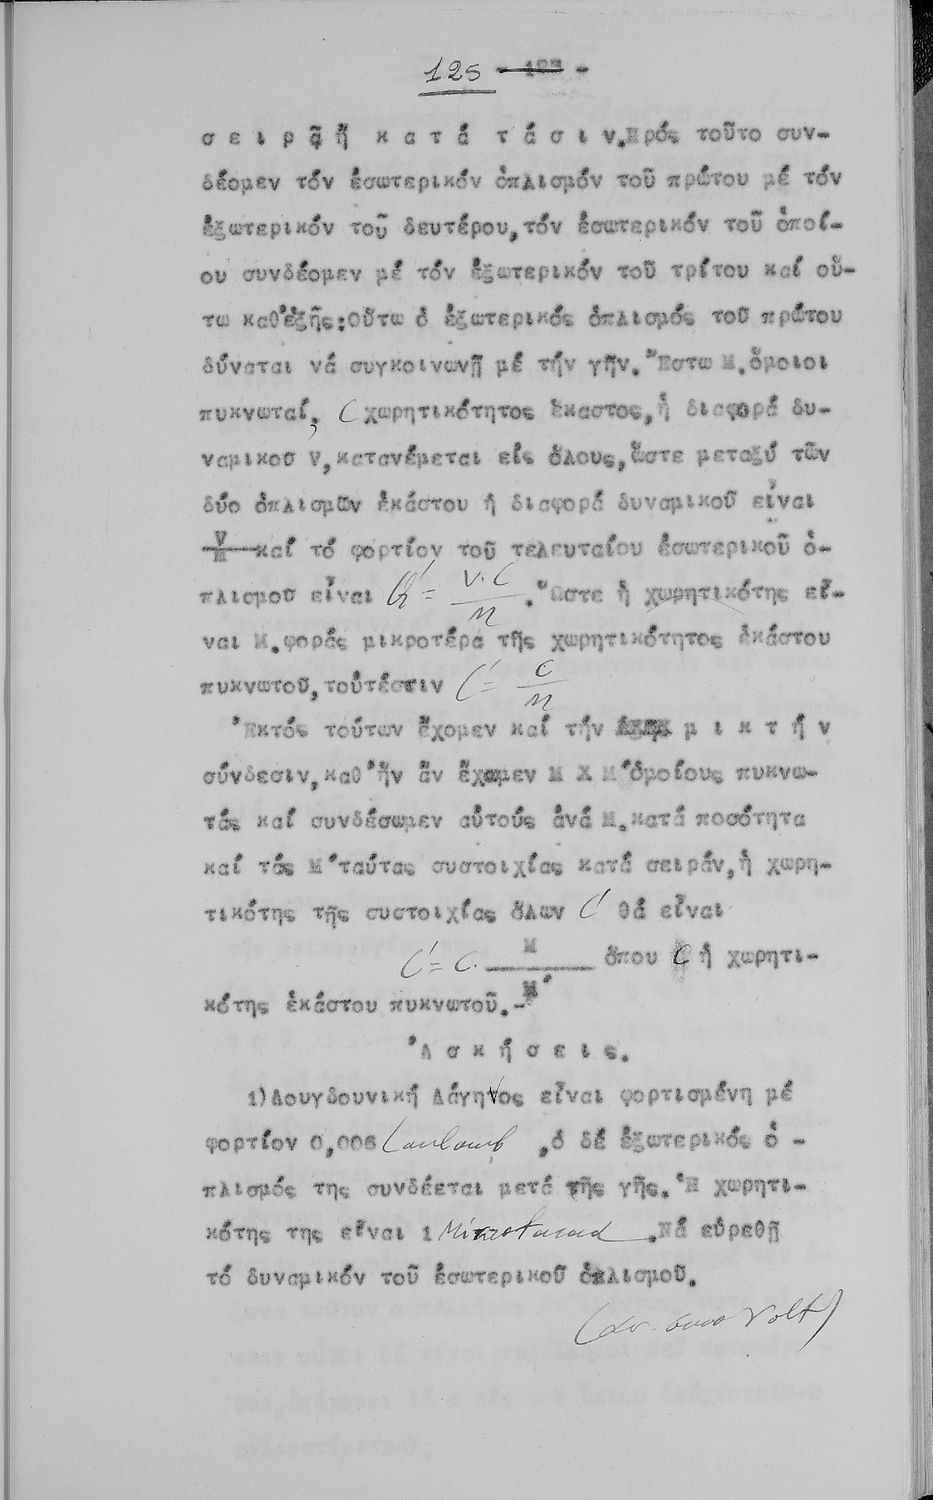 125 - 127 -
σ ε ι ρ ᾷ ἤ κ α τ ά τ ά σ ι ν.Πρός τοῦτο συν-
δέομεν τόν ἐσωτερικόν ὁπλισμόν τοῦ πρώτου μέ τόν
ἐξωτερικόν τοῦ δευτέρου,τόν ἐσωτερικόν τοῦ ὁποί-
ου συνδέομεν μέ τόν ἐξωτερικόν τοῦ τρίτου καί οὕ-
τω καθ'ἑξῆς:Οὕτω ὁ ἐξωτερικός ὁπλισμός τοῦ πρώτου
δύναται νά συγκοινωνῇ μέ τήν γῆν. Ἔστω Μ.ὅμοιοι
πυκνωταί, C χωρητικότητος ἕκαστος,ἡ διαφορά δυ-
ναμικοσ V,κατανέμεται εἰς ὅλους,ὥστε μεταξύ τῶν
δύο ὁπλισμῶν ἑκάστου ἡ διαφορά δυναμικοῦ εἶναι
V/M καί τό φορτίον τοῦ τελευταίου ἐσωτερικοῦ ὁ-
πλισμοῦ εἶναι Q' = V.C/M . Ὥστε ἡ χωρητικότης εἶ-
ναι Μ.φοράς μικροτέρα τῆς χωρητικότητος ἑκάστου
πυκνωτοῦ,τοὐτέστιν C' = C/M
Ἐκτός τούτων ἔχομεν καί τήν μ ι κ τ ή ν
σύνδεσιν,καθ'ἥν ἄν ἔχωμεν Μ Χ Μ'ὁμοίους πυκνω-
τάς καί συνδέσωμεν αὐτούς ἀνά Μ.κατά ποσότητα
καί τάς Μ'ταύτας συστοιχίας κατά σειράν,ἡ χωρη-
τικότης τῆς συστοιχίας ὅλων C' θά εἶναι
C' = C. M/M' ὅπου C ἡ χωρητι-
κότης ἑκάστου πυκνωτοῦ.-
Ἀ σ κ ή σ ε ι ς.
1)Λουγδουνική Λάγηνος εἶναι φορτισμένη μέ
φορτίον 0,006 Coulomb ,ὁ δέ ἐξωτερικός ὁ -
πλισμός της συνδέεται μετά τῆς γῆς. Ἡ χωρητι-
κότης της εἶναι 1 Microfarad .Νά εὑρεθῇ
τό δυναμικόν τοῦ ἐσωτερικοῦ ὁπλισμοῦ.
(Απ. 6000 Volt)